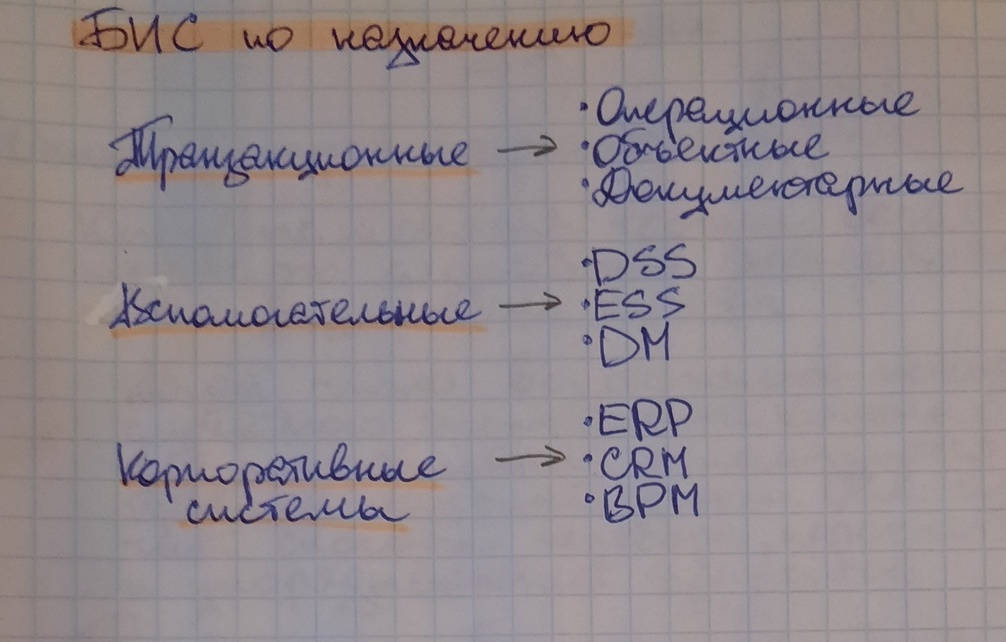 БИС по назначению
Транзакционные → • Операционные
• Объектные
• Документарные
Вспомогательные → • DSS
• ESS
• DM
Корпоративные системы → • ERP
• CRM
• BPM